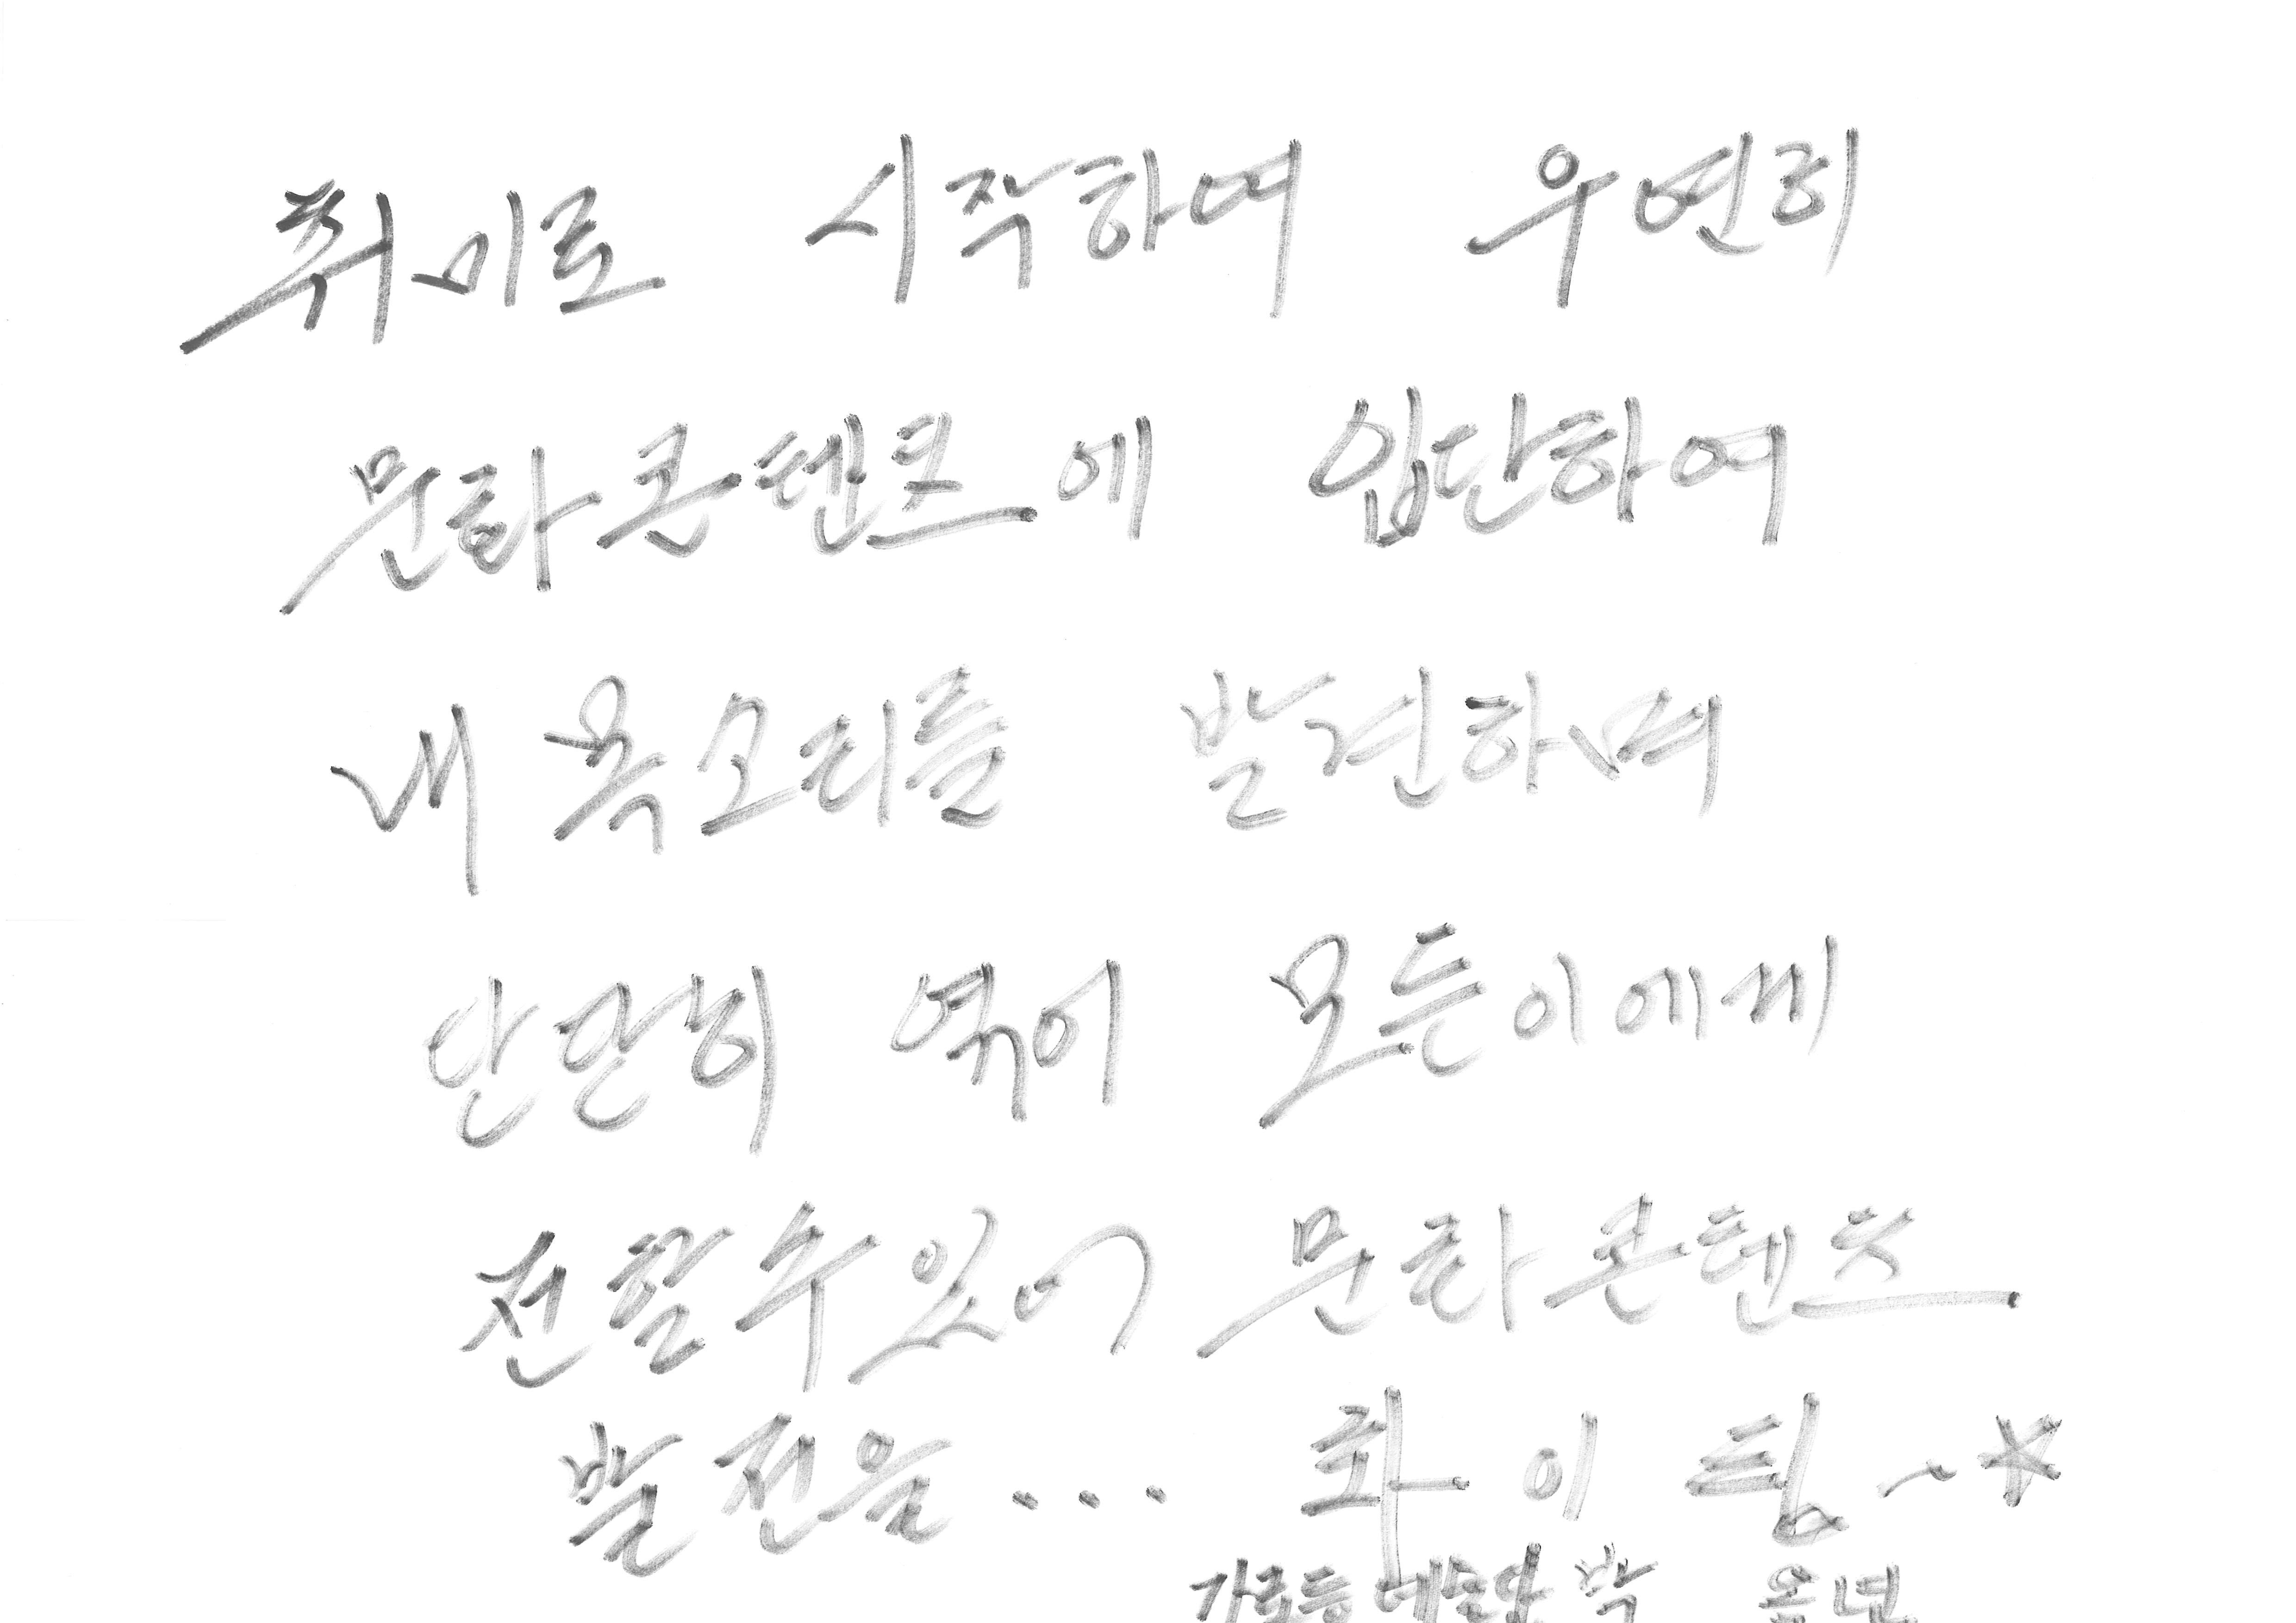 취미로 시작하여 우연히
문화콘텐츠에 입단하여
내 목소리를 발견하며
단단히 엮어 모든이에게
전할수있어 문화콘텐츠
발전을... 화이팅~☆
가로등 예술단 박